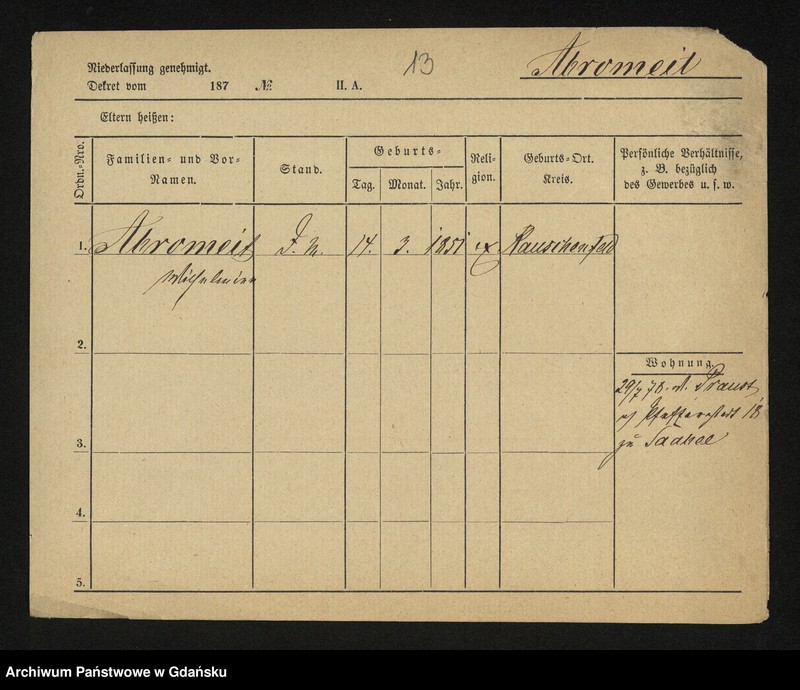 13
Abromeit
Niederlassung genehmigt.
Dekret vom 187 № II. A.
Eltern heißen:
Ordn.-Nro.
Familien- und Vor-
Namen.
Stand.
Geburts-
Tag. Monat. Jahr.
Reli-
gion.
Geburts-Ort.
Kreis.
Persönliche Verhältnisse,
z. B. bezüglich
des Gewerbes u. s. w.
1. Abromeit 14. 3. 1851 Rauschenfeld
Wilhelmine
2.
Wohnung
29/7 78. v. Praust
Pfefferstadt 18
3.
zu
4.
5.
Archiwum Państwowe w Gdańsku